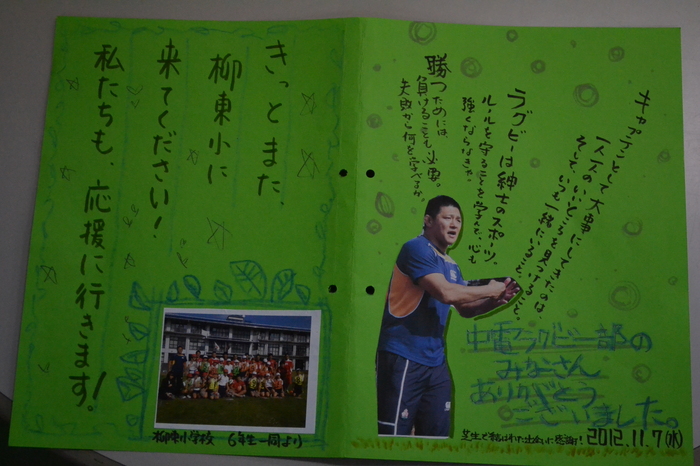 キャプテンとして大事にしてきたのは、
一人一人のいいところを見つけること。
そして、いつも一緒にいること。
ラグビーは紳士のスポーツ。
ルールを守ることを学び、心も
強くならなきゃ。
勝つためには、
負けることも必要。
失敗から何を学べるか。
中電ラグビー部の
みなさん
ありがとう
ございました。
芝生で結ばれた出会いに感謝!
2012.11.7(水)
きっとまた、
柳東小に
来てください!
私たちも、応援に行きます!
柳東小学校 6年生一同より